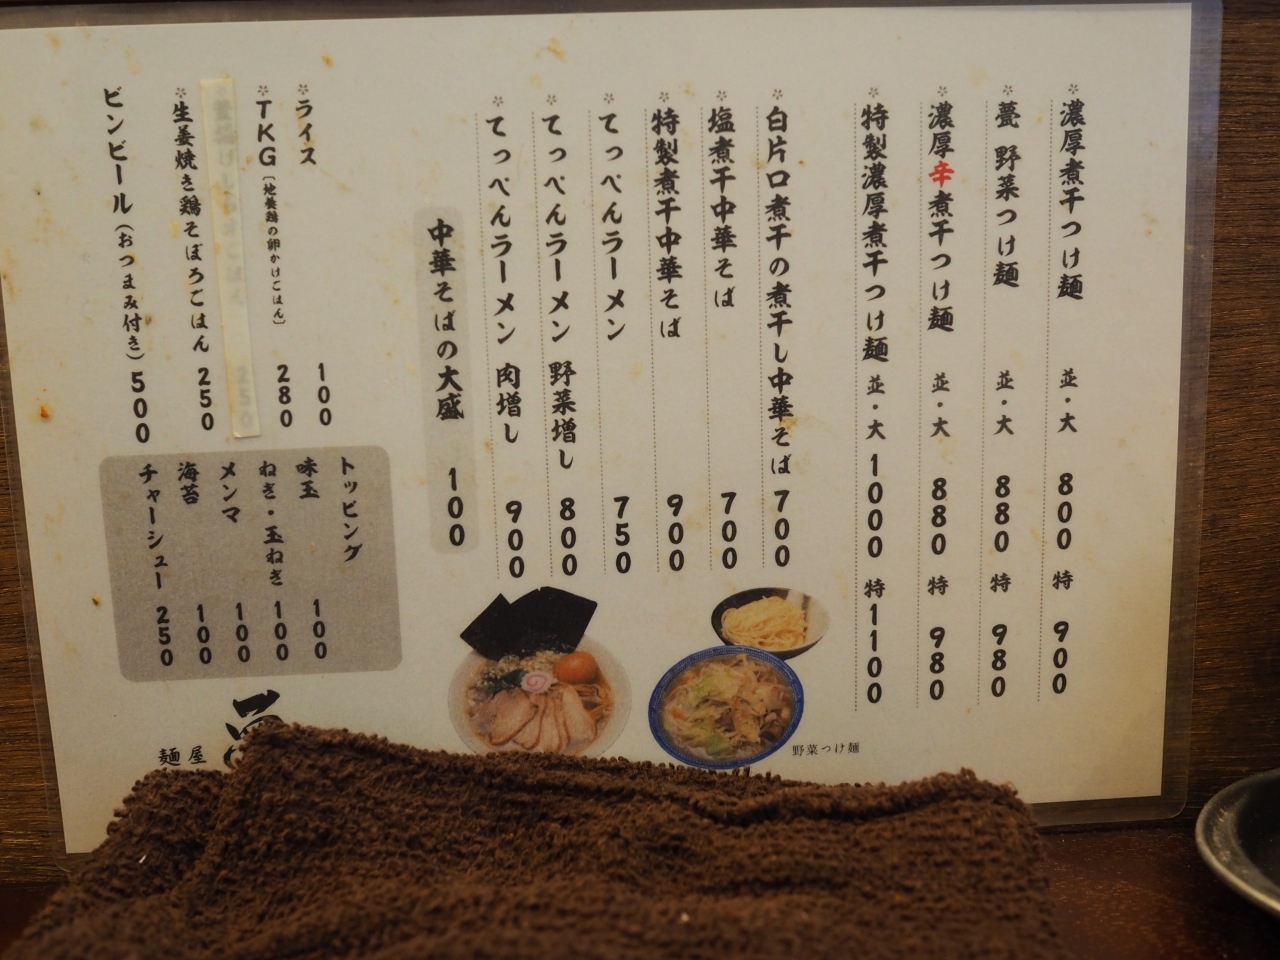 濃厚煮干つけ麺 並・大 800 特 900
甍 野菜つけ麺 並・大 880 特 980
濃厚辛煮干つけ麺 並・大 880 特 980
特製濃厚煮干つけ麺 並・大 1000 特 1100
白片口煮干の煮干し中華そば 700
塩煮干中華そば 700
特製煮干中華そば 900
てっぺんラーメン 750
てっぺんラーメン 野菜増し 800
てっぺんラーメン 肉増し 900
中華そばの大盛 100
ライス 100
TKG〔地養鶏の卵かけごはん〕 280
生姜焼き鶏そぼろごはん 250
ビンビール(おつまみ付き) 500
トッピング
味玉 100
ねぎ・玉ねぎ 100
メンマ 100
海苔 100
チャーシュー 250
野菜つけ麺
麺屋